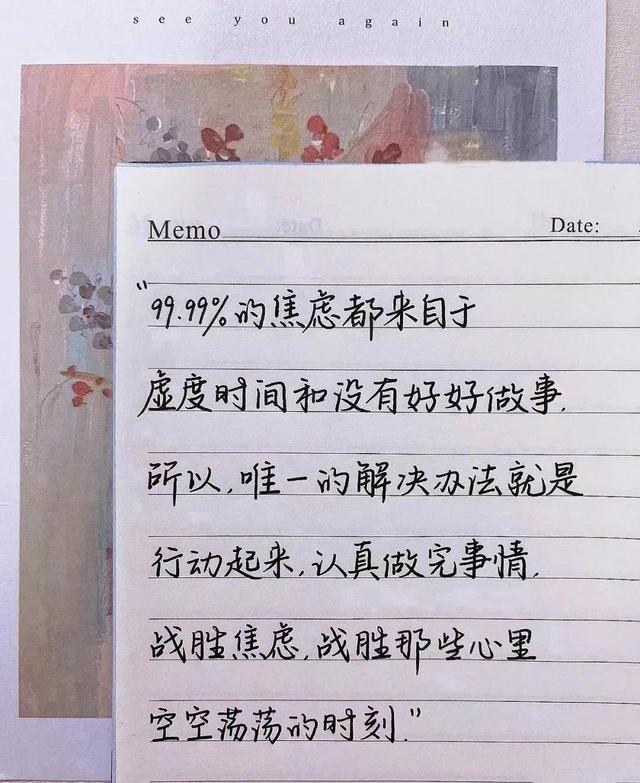 see you again
Memo
Date:
"99.99%的焦虑都来自于
虚度时间和没有好好做事.
所以,唯一的解决办法就是
行动起来,认真做完事情.
战胜焦虑,战胜那些心里
空空荡荡的时刻."